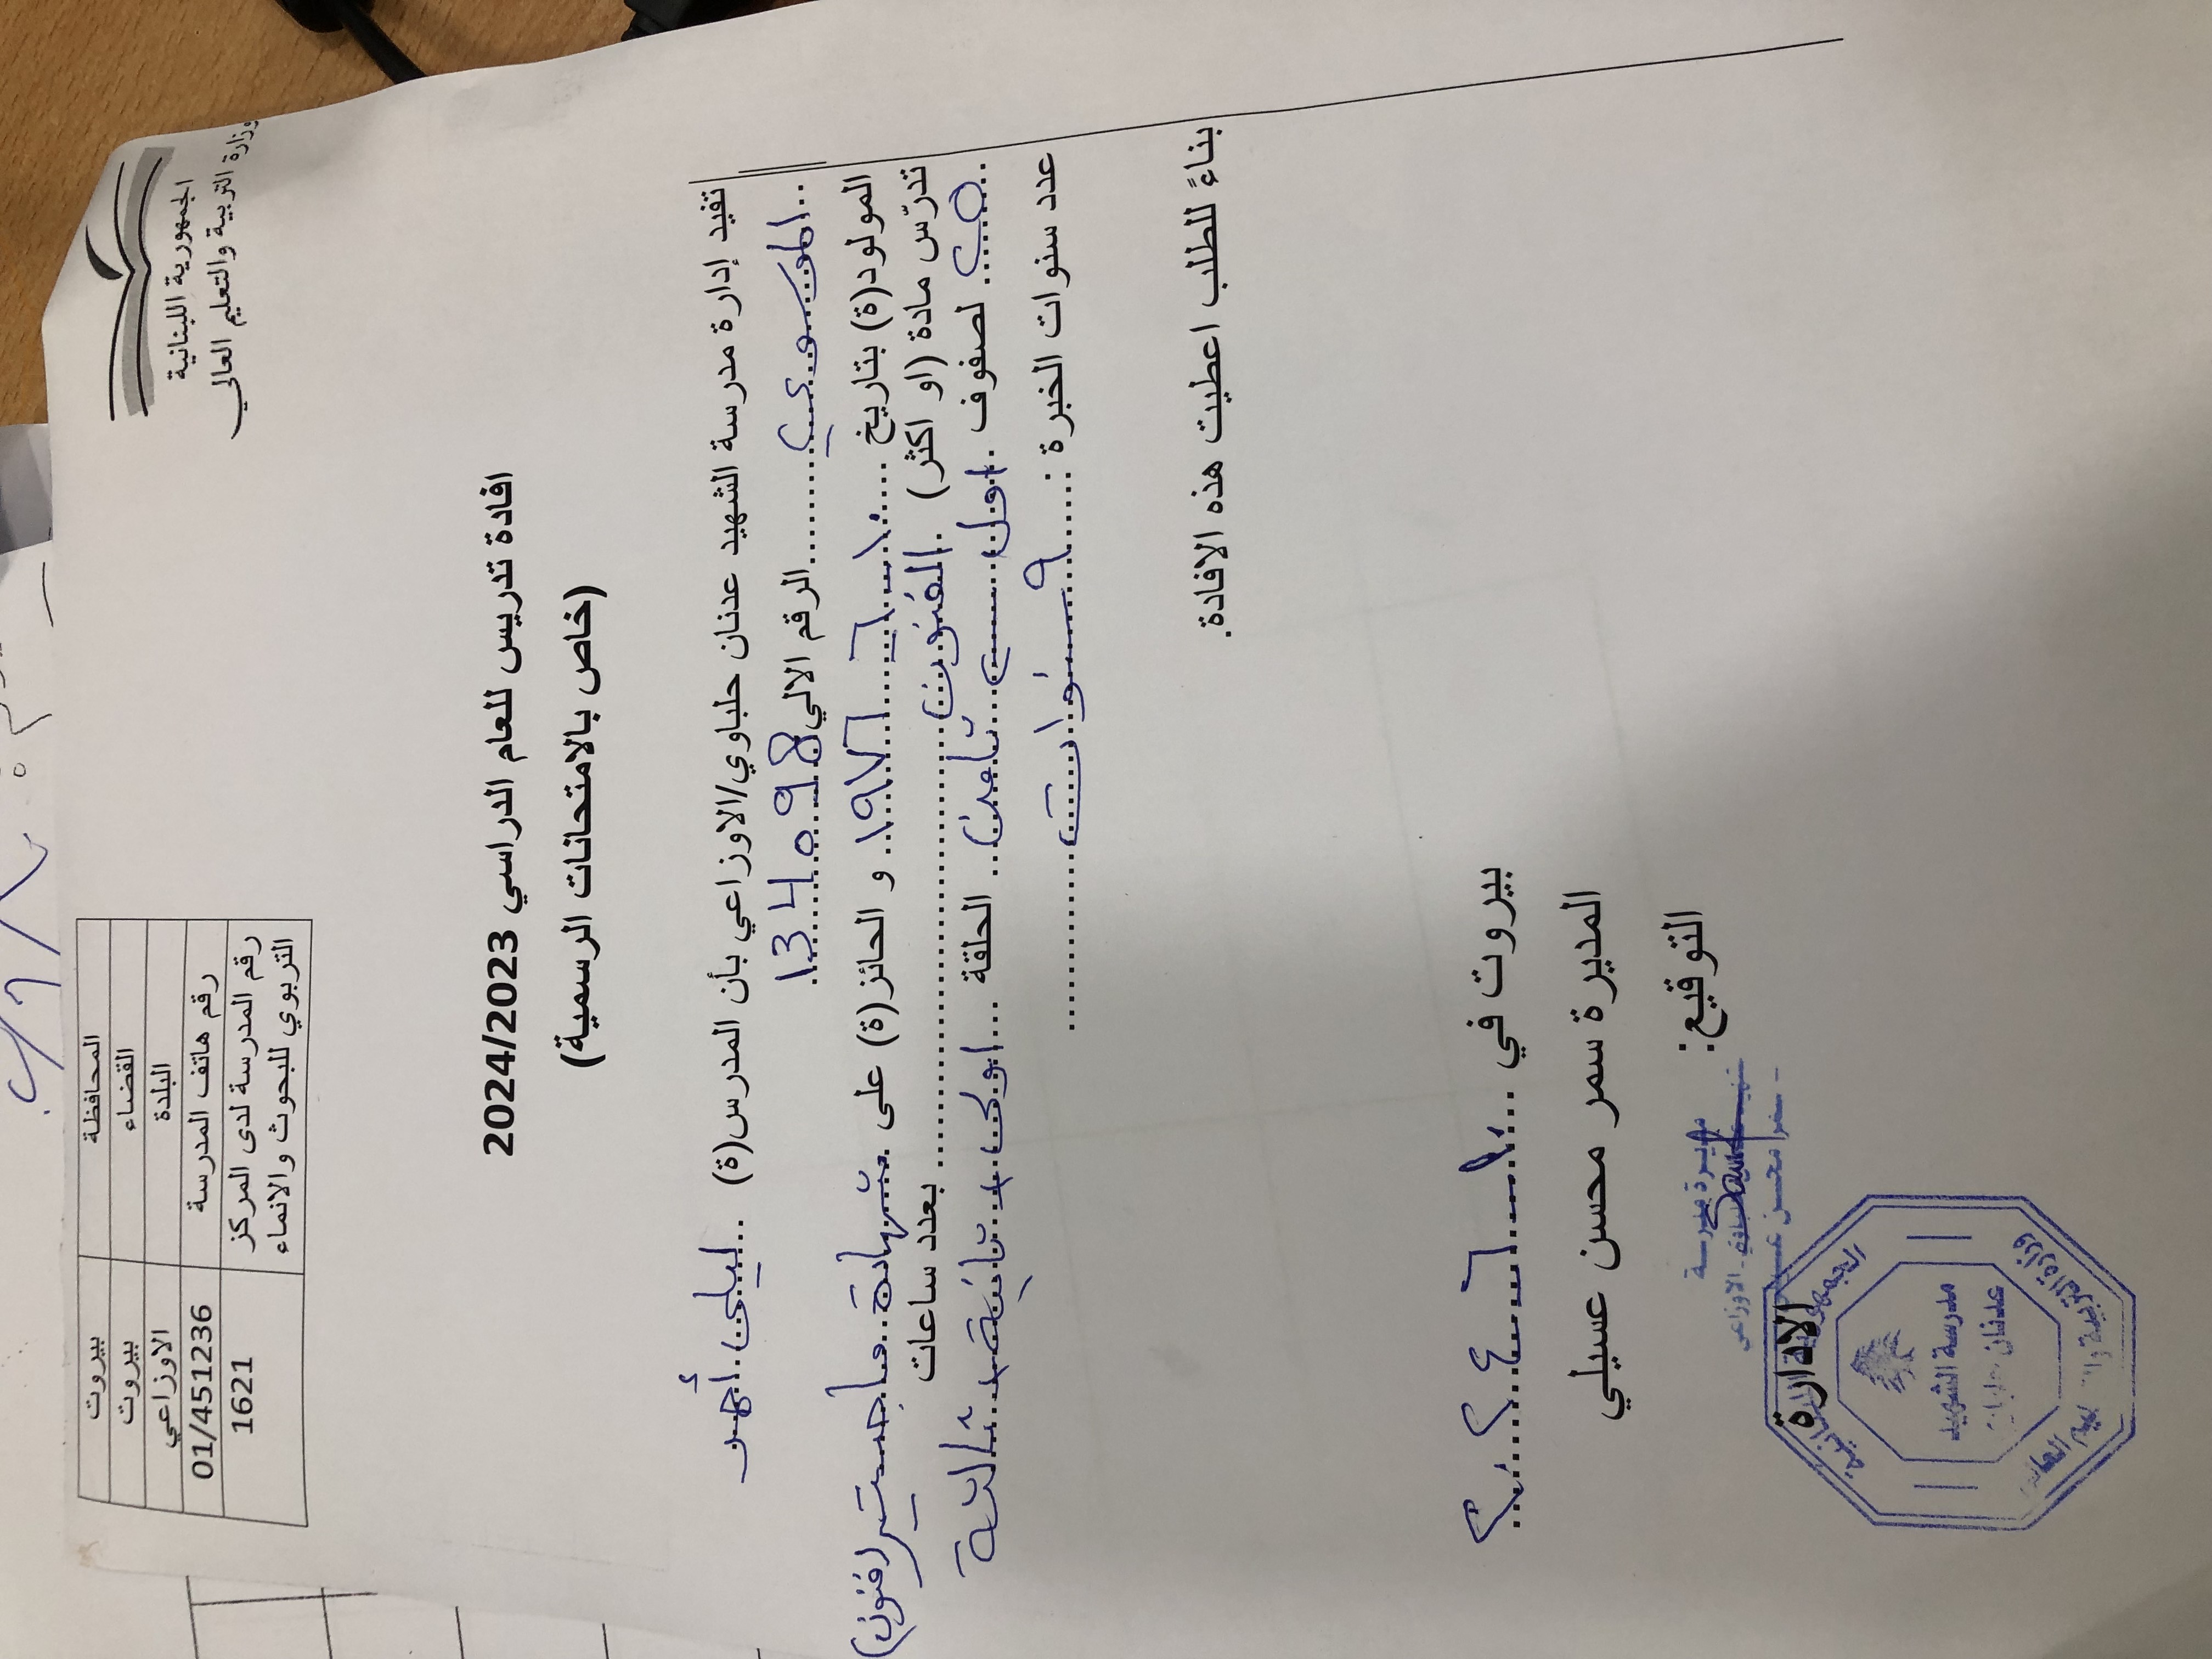 الجمهورية اللبنانية
وزارة التربية والتعليم العالي
المحافظة بيروت
القضاء بيروت
البلدة الاوزاعي
رقم هاتف المدرسة 01/451236
رقم المدرسة لدى المركز التربوي للبحوث والانماء 1621
افادة تدريس للعام الدراسي 2024/2023
(خاص بالامتحانات الرسمية)
تفيد إدارة مدرسة الشهيد عدنان حلباوي/الاوزاعي بأن المدرس(ة) ..ليلى أحمد
الموسوي..........الرقم الالي 134098
المولود(ة) بتاريخ ..... ١٠/٦/١٩٧٦ و الحائز(ة) على شهادة ماجستير (فنون)
تدرّس مادة (او اكثر) .الفنون.......................... بعدد ساعات
٢٥ لصفوف ..اول ← ثامن.. الحلقة ...اولى + ثانية + ثالثة
عدد سنوات الخبرة : ........ ٩ سنوات ..............
بناءً للطلب اعطيت هذه الافادة.
بيروت في .... ١٠/٦/٢٠٢٤
المديرة سمر محسن عسيلي
التوقيع:
مديرة مدرسة
الاوزاعي
سمر محسن عسيلي
الادارة
الجمهورية اللبنانية
مدرسة الشهيد
عدنان
وزارة التربية